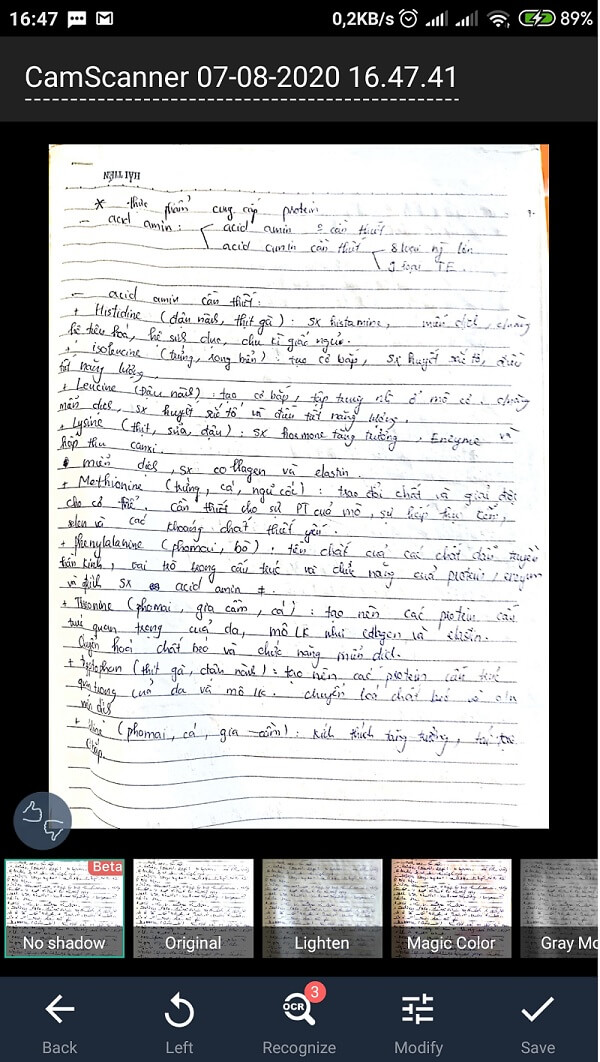 16:47
0,2KB/s
89%
CamScanner 07-08-2020 16.47.41
HẢI TIẾN
* thực phẩm cung cấp protein
- acid amin: acid amin ko cần thiết
acid amin cần thiết 8 loại ng lớn
9 loại TE.
- acid amin cần thiết:
+ Histidine (đậu nành, thịt gà): sx histamine, miễn dịch, chống
hệ tiêu hoá, hệ sdục, chu kì giấc ngủ.
+ isoleucine (trứng, rong biển): tạo cơ bắp, sx huyết sắc tố, điều
tiết năng lượng.
+ Leucine (Đậu nành): tạo cơ bắp, tập trung ở mô cơ,
miễn dịch, sx huyết sắc tố và điều tiết năng lượng.
+ Lysine (thịt, sữa, đậu): sx hormone tăng trưởng, Enzyme và
hấp thu canxi.
miễn dịch, sx collagen và elastin.
+ Methionine (trứng, cá, ngũ cốc): trao đổi chất và giải độc
cho cơ thể. Cần thiết cho sự PT của mô, sự hấp thụ kẽm,
selen và các khoáng chất thiết yếu.
+ phenylalanine (phomai, bò): tiền chất của các chất dẫn truyền
thần kinh, vai trò trong cấu trúc và chức năng của protein, enzym
và dịch sx acid amin ≠.
+ Threonine (phomai, gia cầm, cá): tạo nên các protein cấu
trúc quan trọng của da, mô LK như collagen và elastin.
chuyển hoá chất béo và chức năng miễn dịch.
+ Tryptophan (thịt gà, đậu nành): tạo nên các protein cấu trúc
quan trọng của da và mô LK. chuyển hoá chất béo và c/n
miễn dịch
+ (phomai, cá, gia cầm): kích thích tăng trưởng, tái tạo
cơ bắp.
Beta
No shadow
Original
Lighten
Magic Color
Gray Mo
OCR
3
Back
Left
Recognize
Modify
Save